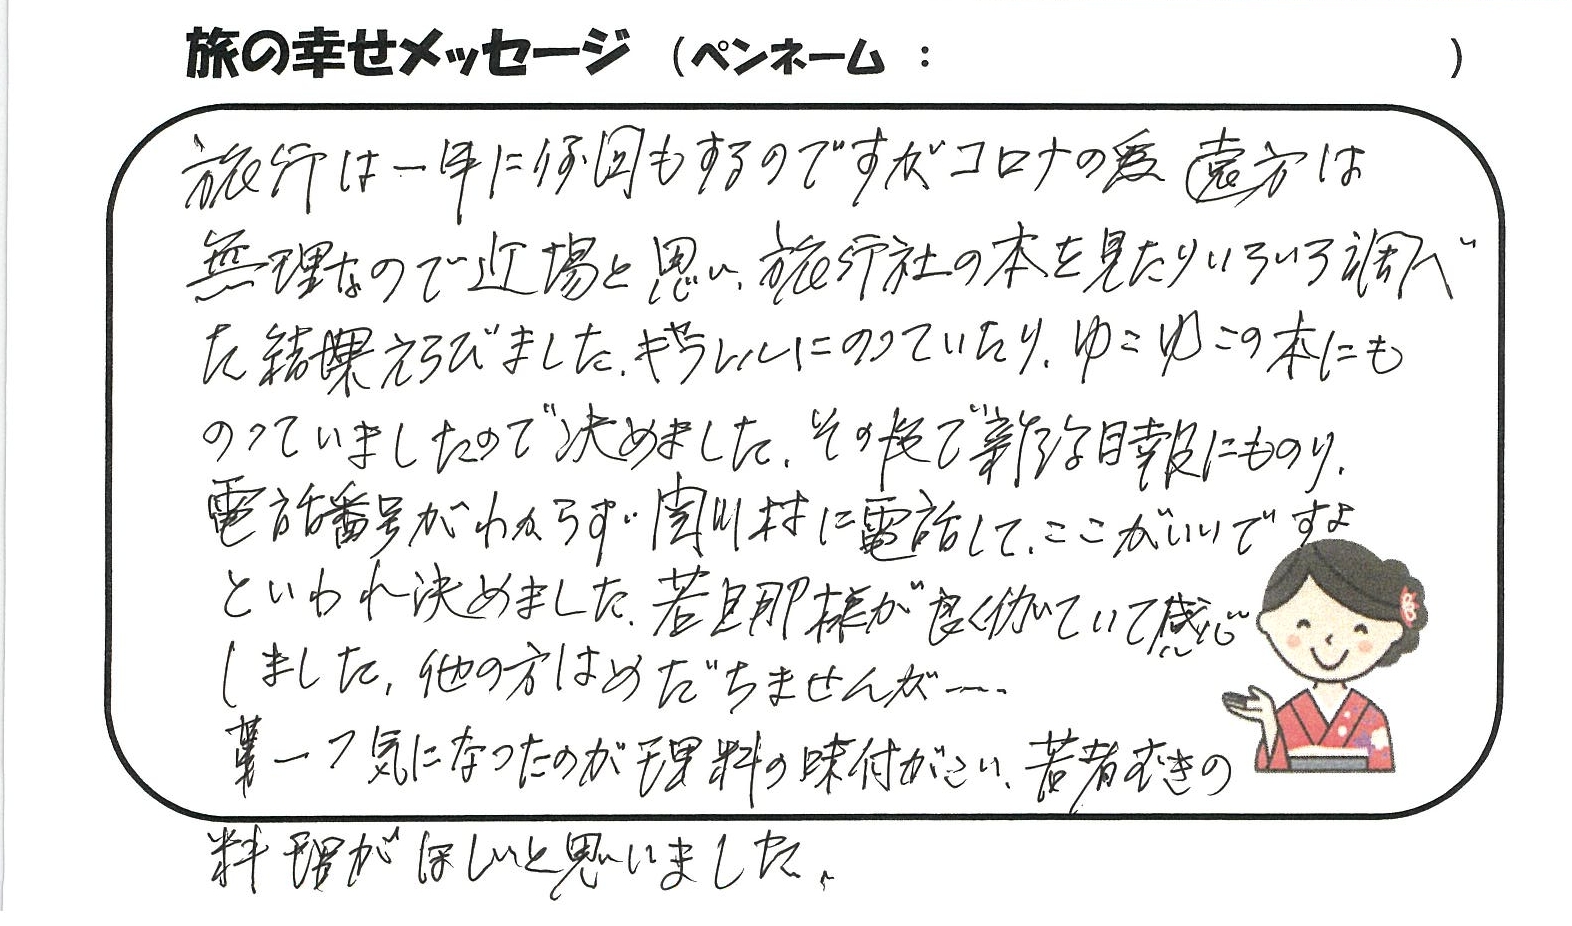 旅の幸せメッセージ （ペンネーム ： ）
旅行は一年に何回もするのですがコロナの為遠方は
無理なので近場と思い、旅行社の本を見たりいろいろ調べ
た結果えらびました。チラシにのっていたり、ゆこゆこの本にも
のっていましたので決めました。その後で新潟日報にものり、
電話番号がわからず関川村に電話して、ここがいいですよ
といわれ決めました。若旦那様が良く働いていて感心
しました。他の方はめだちませんが―..
一つ気になったのが料理の味付がこい、若者むきの
料理がほしいと思いました。